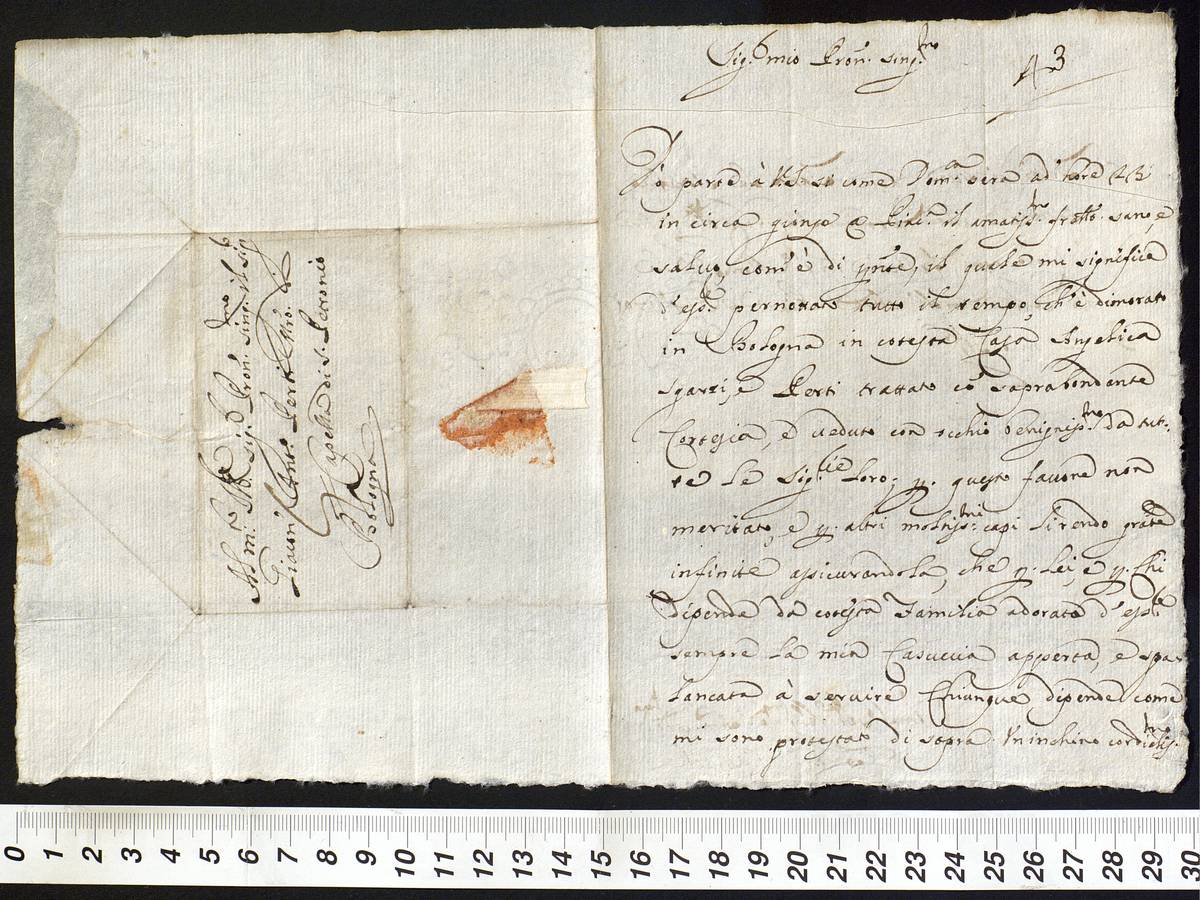 Sig.r mio Pron. sing.mo
43
Dò parte à V.S. si come Dom.ca sera ad hore 23
in circa giunse a il amatiss.mo frãtto. sano, e
salvo, com'è di pñte, il quale mi significa
d'esser pernottato tutto il tempo, ch'è dimorato
in Bologna in cotesta Casa Angelica
Sgarzi, e Perti trattato cõ soprabondante
Cortesia, e veduto con occhio benigniss.mo da tut-
te le Sig.rie loro; p. questo favore non
meritato, e p. altri moltiss.mi capi li rendo gratie
infinite assicurandola, che p. lei, e p. chi
dipende da cotesta Familia adorata
sempre la mia Casuccia apperta, e spa-
lancata à servire chiunque dipende come
mi sono protestato di sopra Un inchino cordialis.mo
All' Ill.
mi. Sig. Pron. Sing. il Sig.r
Giacom. Ant. Perti Mro. di
Capella di S. Petronio
Bologna
0 1 2 3 4 5 6 7 8 9 10 11 12 13 14 15 16 17 18 19 20 21 22 23 24 25 26 27 28 29 30